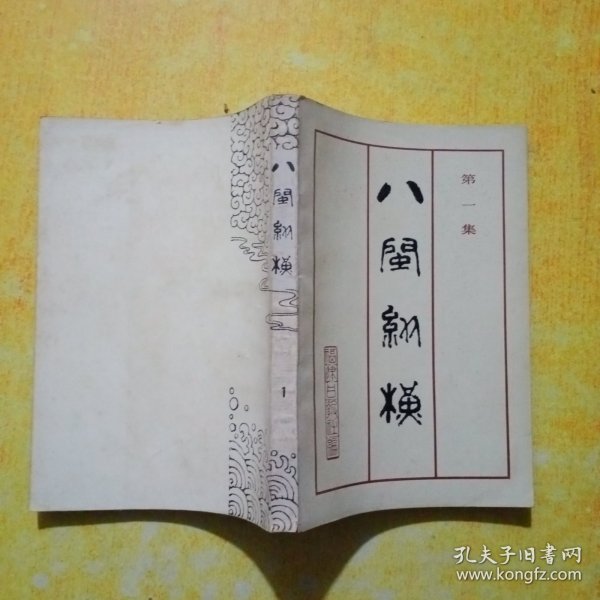 八闽纵横
1
八闽纵横
第一集
孔夫子旧书网
www.kongfz.com